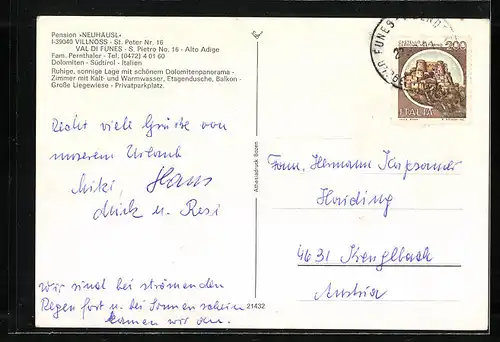 Pension »NEUHÄUSL«
I-39040 VILLNÖSS - St. Peter Nr. 16
VAL DI FUNES - S. Pietro No. 16 - Alto Adige
Fam. Pernthaler - Tel. (0472) 4 01 60
Dolomiten - Südtirol - Italien
Ruhige, sonnige Lage mit schönem Dolomitenpanorama -
Zimmer mit Kalt- und Warmwasser, Etagendusche, Balkon -
Große Liegewiese - Privatparkplatz.
Recht viele Grüße von
unserem Urlaub
Miki, Hans
u. Resi
Wir sind bei strömenden
Regen fort u. bei Sonnenschein
kamen wir an.
21432
Athesiadruck Bozen
FUNES
200
ITALIA
Fam. Hermann
Haiding
4631 Krenglbach
Austria